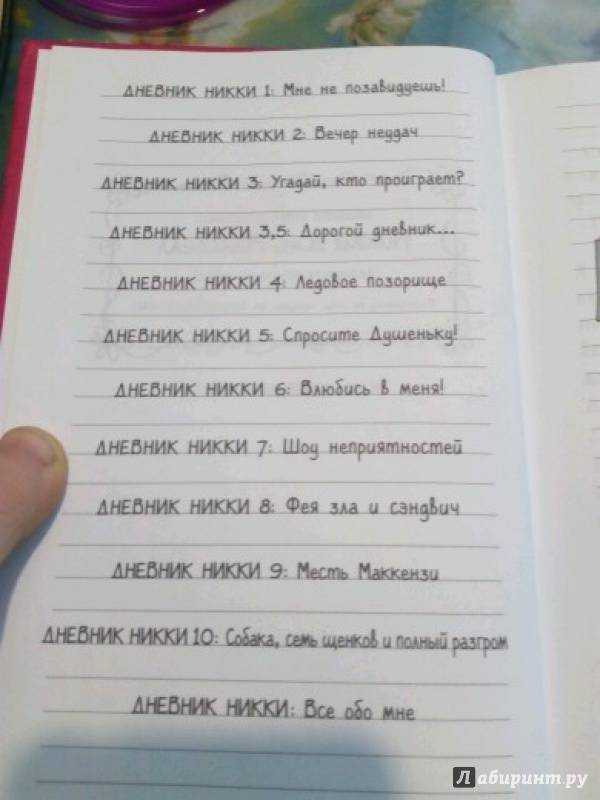 ДНЕВНИК НИККИ 1: Мне не позавидуешь!
ДНЕВНИК НИККИ 2: Вечер неудач
ДНЕВНИК НИККИ 3: Угадай, кто проиграет?
ДНЕВНИК НИККИ 3,5: Дорогой дневник...
ДНЕВНИК НИККИ 4: Ледовое позорище
ДНЕВНИК НИККИ 5: Спросите Душеньку!
ДНЕВНИК НИККИ 6: Влюбись в меня!
ДНЕВНИК НИККИ 7: Шоу неприятностей
ДНЕВНИК НИККИ 8: Фея зла и сэндвич
ДНЕВНИК НИККИ 9: Месть Маккензи
ДНЕВНИК НИККИ 10: Собака, семь щенков и полный разгром
ДНЕВНИК НИККИ: Все обо мне
Лабиринт.ру